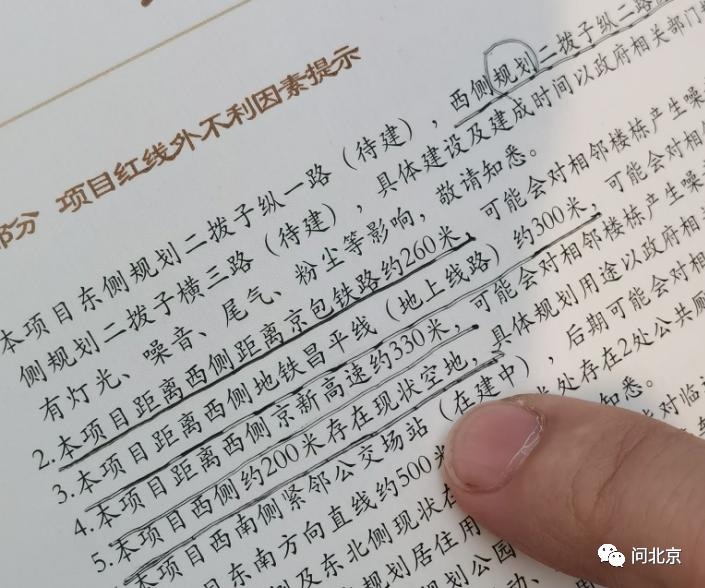 部分 项目红线外不利因素提示
本项目东侧规划二拨子纵一路（待建），西侧规划二拨子纵二路
侧规划二拨子横三路（待建），具体建设及建成时间以政府相关部门
有灯光、噪音、尾气、粉尘等影响，敬请知悉。
2.本项目距离西侧距离京包铁路约260米，可能会对相邻楼栋产生噪
3.本项目距离西侧地铁昌平线（地上线路）约300米，可能会对相
4.本项目距离西侧京新高速约330米，可能会对相邻楼栋产生噪
5.本项目西侧约200米存在现状空地，具体规划用途以政府相
本项目西南侧紧邻公交场站（在建中），后期可能会对相
目东南方向直线约500米 处存在2处公共厕
及东北侧现状在 知悉。
规划居住用 对临
规划公园
问北京